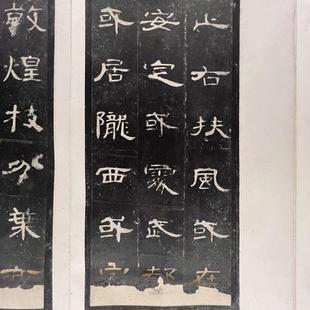 止右扶風或在
安定或處武都
或居隴西或家
敦煌枝分葉布